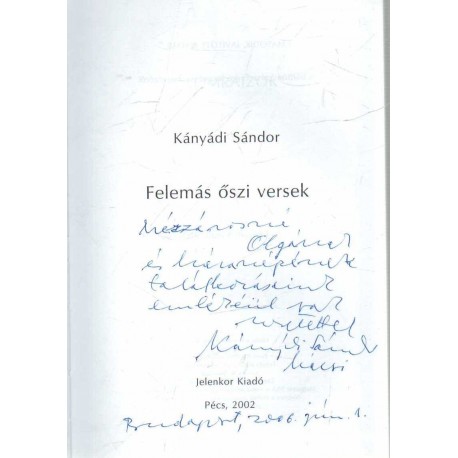 Kányádi Sándor
Felemás őszi versek
Mészárosné
Olgának
és
találkozásaink
emlékéül
Kányádi Sándor
Jelenkor Kiadó
Pécs, 2002
Budapest, 2006. jún. 1.